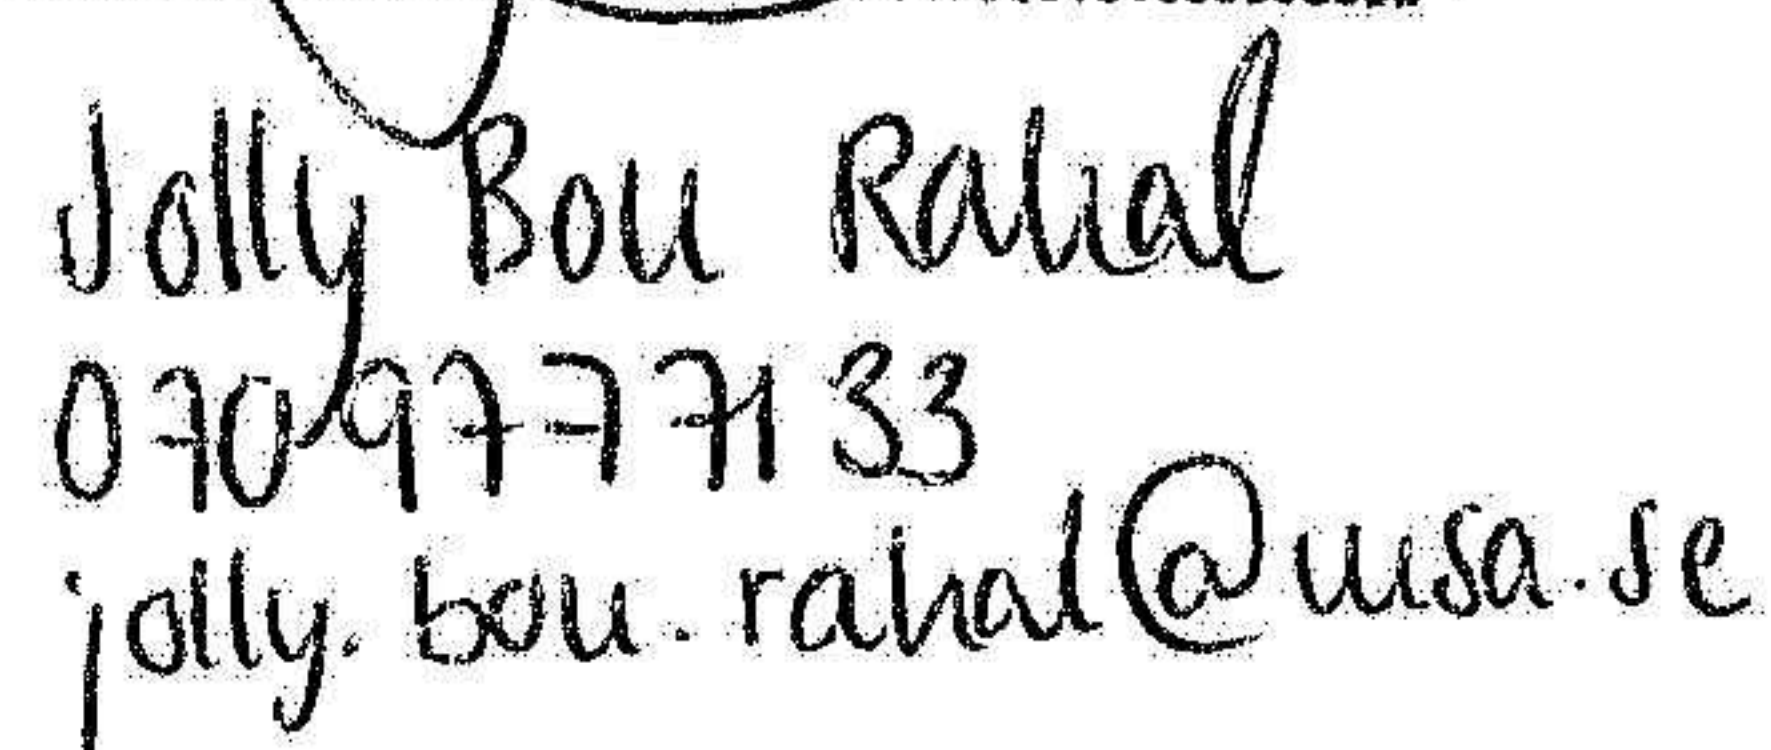 Jolly Bou Rahal
070 97 7 71 33
jolly.bou.rahal@msa.se